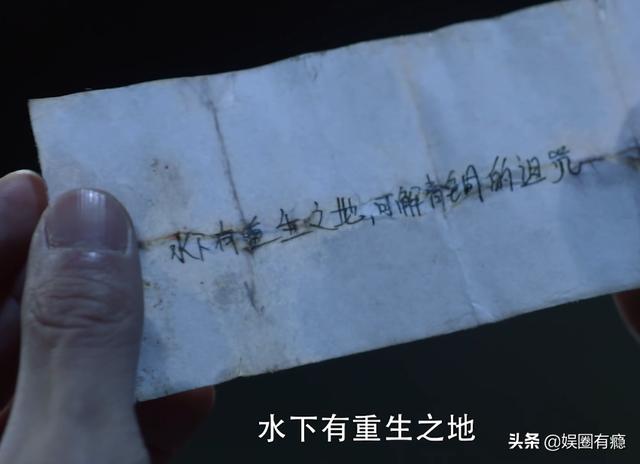 水下有重生之地,可解青铜的诅咒
水下有重生之地
头条 @娱圈有瘾